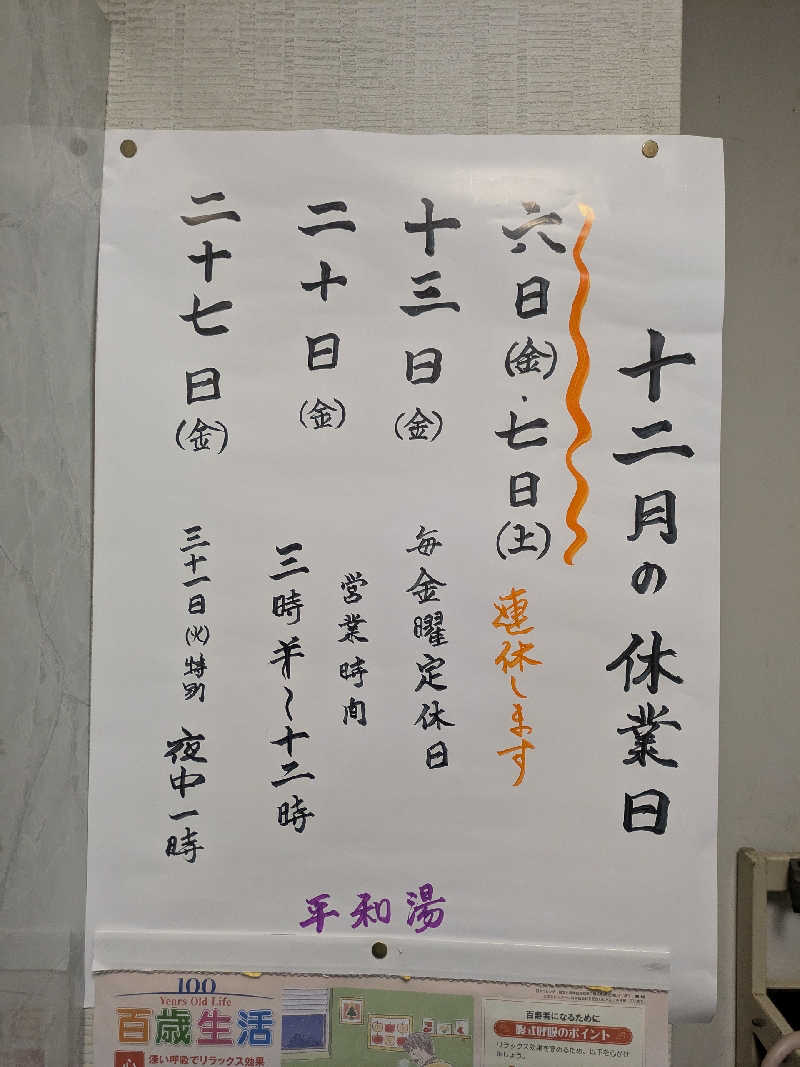 十二月の休業日
六日(金)・七日(土)
連休します
十三日(金)
毎金曜定休日
二十日(金)
営業時間
三時半〜十二時
二十七日(金)
三十一日(火)特別 夜中一時
平和湯
100
Years Old Life
百歳生活
深い呼吸でリラックス効果
百寿者になるために
腹式呼吸のポイント
リラックス効果を高めるため、以下を心がけ
ましょう。